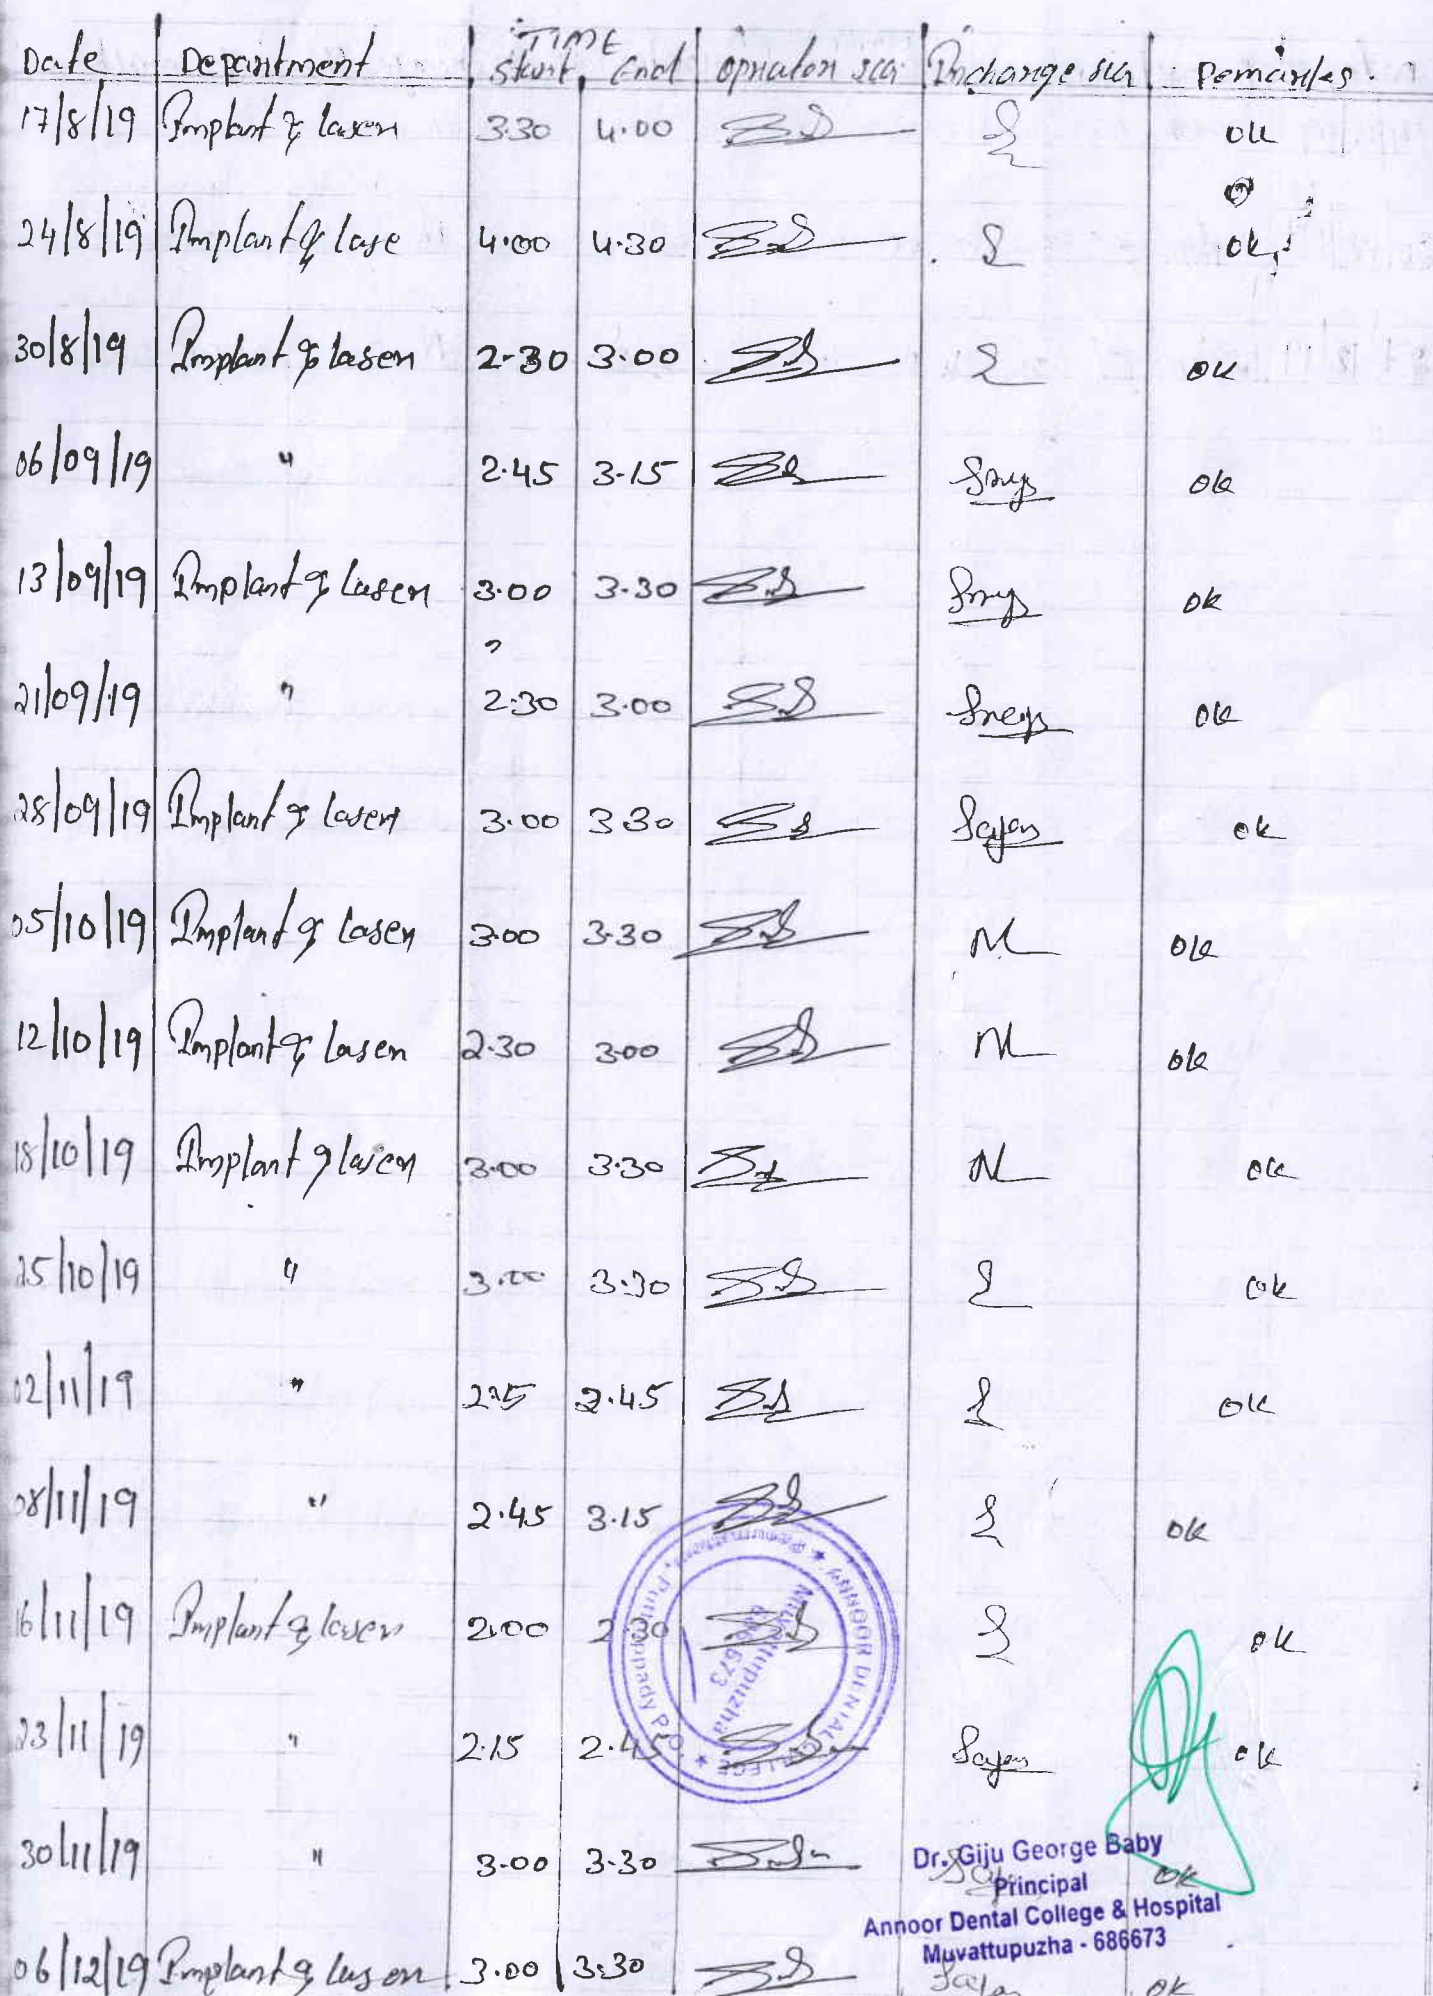 TIME
Date Department Start End operator sig Incharge sig Remarks.
17/8/19 Implant & laser 3.30 4.00 ok
24/8/19 Implant & lase 4.00 4.30 ok
30/8/19 Implant & laser 2-30 3.00 ok
06/09/19 " 2.45 3-15 ok
13/09/19 Implant & laser 3.00 3.30 ok
21/09/19 " 2:30 3.00 ok
28/09/19 Implant & laser 3.00 330 ok
05/10/19 Implant & laser 3.00 3.30 ok
12/10/19 Implant & laser 2.30 3.00 ok
18/10/19 Implant & laser 3.00 3.30 ok
25/10/19 " 3.00 3.30 ok
02/11/19 " 2.45 ok
08/11/19 " 2.45 3.15 ok
16/11/19 Implant & laser 2.00 2.30 ok
23/11/19 " 2.15 2.45 ok
30/11/19 " 3.00 3.30 ok
06/12/19 Implant & laser 3.00 3.30 ok
ANNOOR DENTAL COLLEGE ★ Puthuppady P.O. ★
Muvattupuzha
686 673
Dr. Giju George Baby
Principal
Annoor Dental College & Hospital
Muvattupuzha - 686673